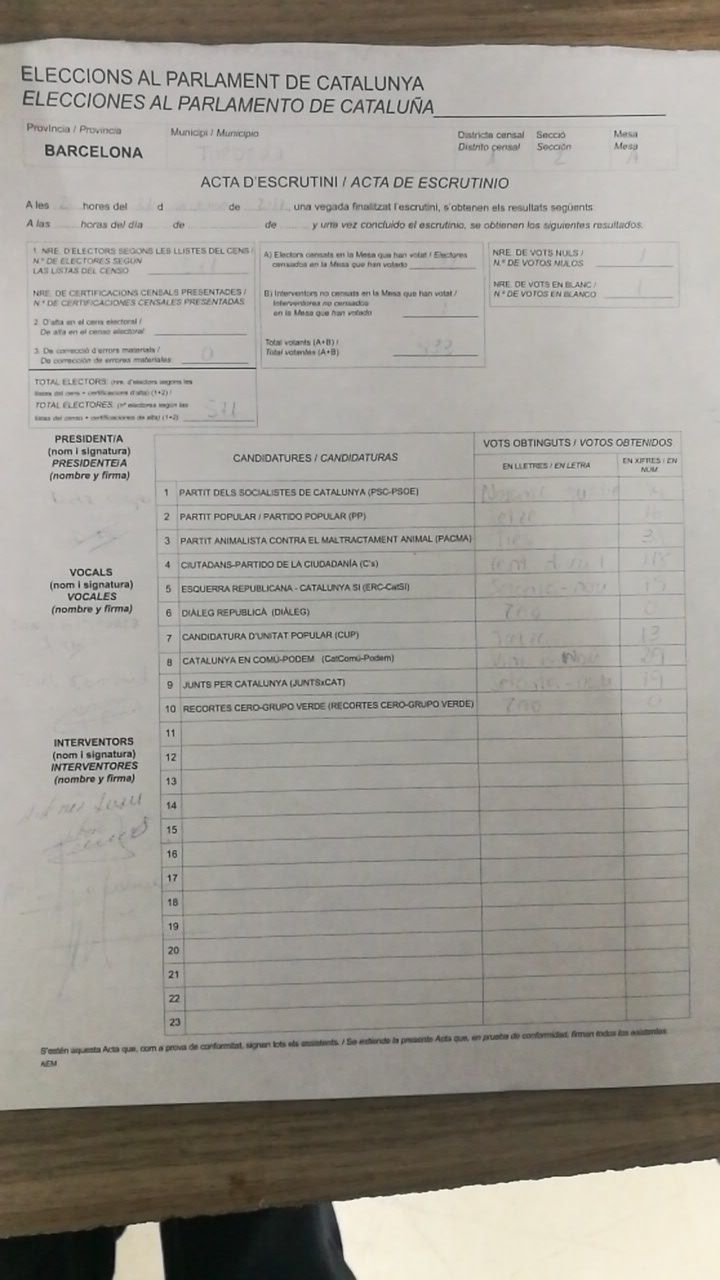 ELECCIONS AL PARLAMENT DE CATALUNYA
ELECCIONES AL PARLAMENTO DE CATALUÑA
Província / Provincia Municipi / Municipio Districte censal Secció Mesa
Distrito censal Sección Mesa
BARCELONA 1 2 A
ACTA D'ESCRUTINI / ACTA DE ESCRUTINIO
A les hores del d de una vegada finalitzat l'escrutini, s'obtenen els resultats següents:
A las horas del día de de y una vez concluido el escrutinio, se obtienen los siguientes resultados.
1. NRE. D'ELECTORS SEGONS LES LLISTES DEL CENS /
N.º DE ELECTORES SEGÚN
LAS LISTAS DEL CENSO
NRE. DE CERTIFICACIONS CENSALS PRESENTADES /
N.º DE CERTIFICACIONES CENSALES PRESENTADAS
2. D'alta en el cens electoral /
De alta en el censo electoral
3. De correcció d'errors materials /
De corrección de errores materiales 0
TOTAL ELECTORS: (nre. d'electors segons les
llistes del cens + certificacions d'alta) (1+2) /
TOTAL ELECTORES: (nº electores según las
listas del censo + certificaciones de alta) (1+2) 511
A) Electors censats en la Mesa que han votat / Electores
censados en la Mesa que han votado
B) Interventors no censats en la Mesa que han votat /
Interventores no censados
en la Mesa que han votado
Total votants (A+B) /
Total votantes (A+B)
NRE. DE VOTS NULS / 1
N.º DE VOTOS NULOS
NRE. DE VOTS EN BLANC / 1
N.º DE VOTOS EN BLANCO
PRESIDENT/A
(nom i signatura)
PRESIDENTE/A
(nombre y firma)
VOCALS
(nom i signatura)
VOCALES
(nombre y firma)
INTERVENTORS
(nom i signatura)
INTERVENTORES
(nombre y firma)
CANDIDATURES / CANDIDATURAS VOTS OBTINGUTS / VOTOS OBTENIDOS
EN LLETRES / EN LETRA EN XIFRES / EN NUM
1 PARTIT DELS SOCIALISTES DE CATALUNYA (PSC-PSOE)
2 PARTIT POPULAR / PARTIDO POPULAR (PP) Setze 16
3 PARTIT ANIMALISTA CONTRA EL MALTRACTAMENT ANIMAL (PACMA) Tres 3
4 CIUTADANS-PARTIDO DE LA CIUDADANÍA (C's)
5 ESQUERRA REPUBLICANA - CATALUNYA SÍ (ERC-CatSÍ)
6 DIÀLEG REPUBLICÀ (DIÀLEG) Zero 0
7 CANDIDATURA D'UNITAT POPULAR (CUP) Tretze 13
8 CATALUNYA EN COMÚ-PODEM (CatComú-Podem) Vint-i-Nou 29
9 JUNTS PER CATALUNYA (JUNTSxCAT)
10 RECORTES CERO-GRUPO VERDE (RECORTES CERO-GRUPO VERDE) Zero 0
11
12
13
14
15
16
17
18
19
20
21
22
23
S'estén aquesta Acta que, com a prova de conformitat, signen tots els assistents. / Se extiende la presente Acta que, en prueba de conformidad, firman todos los asistentes.
AEM